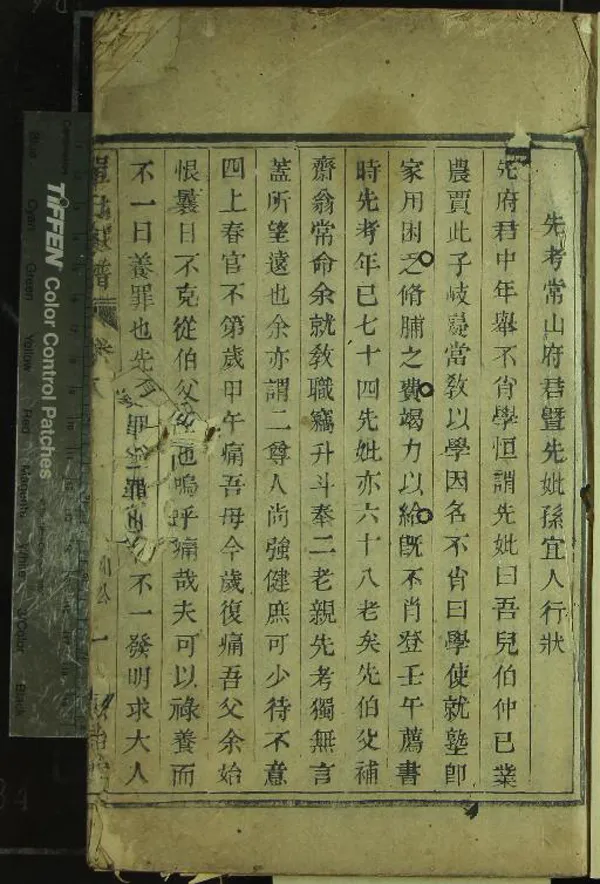 先考常山府君暨先妣孫宜人行狀
先府君中年舉不肖學恒謂先妣曰吾兒伯仲已業
農賈此子岐嶷當敎以學因名不肖曰學使就塾卽
家用困乏脩脯之費竭力以給旣不肖登壬午薦書
時先考年已七十四先妣亦六十八老矣先伯父補
齋翁常命余就敎職竊升斗奉二老親先考獨無言
蓋所望遠也余亦謂二尊人尚強健庶可少待不意
四上春官不第歲甲午痛吾母今歲復痛吾父余始
恨曩日不克從伯父 也嗚呼痛哉夫可以祿養而
不一日養罪也先 不一發明求大人
譜
一
TIFFEN Color Control Patches
Blue
Cyan
Green
Yellow
Red
Magenta
White
3/Color
Black